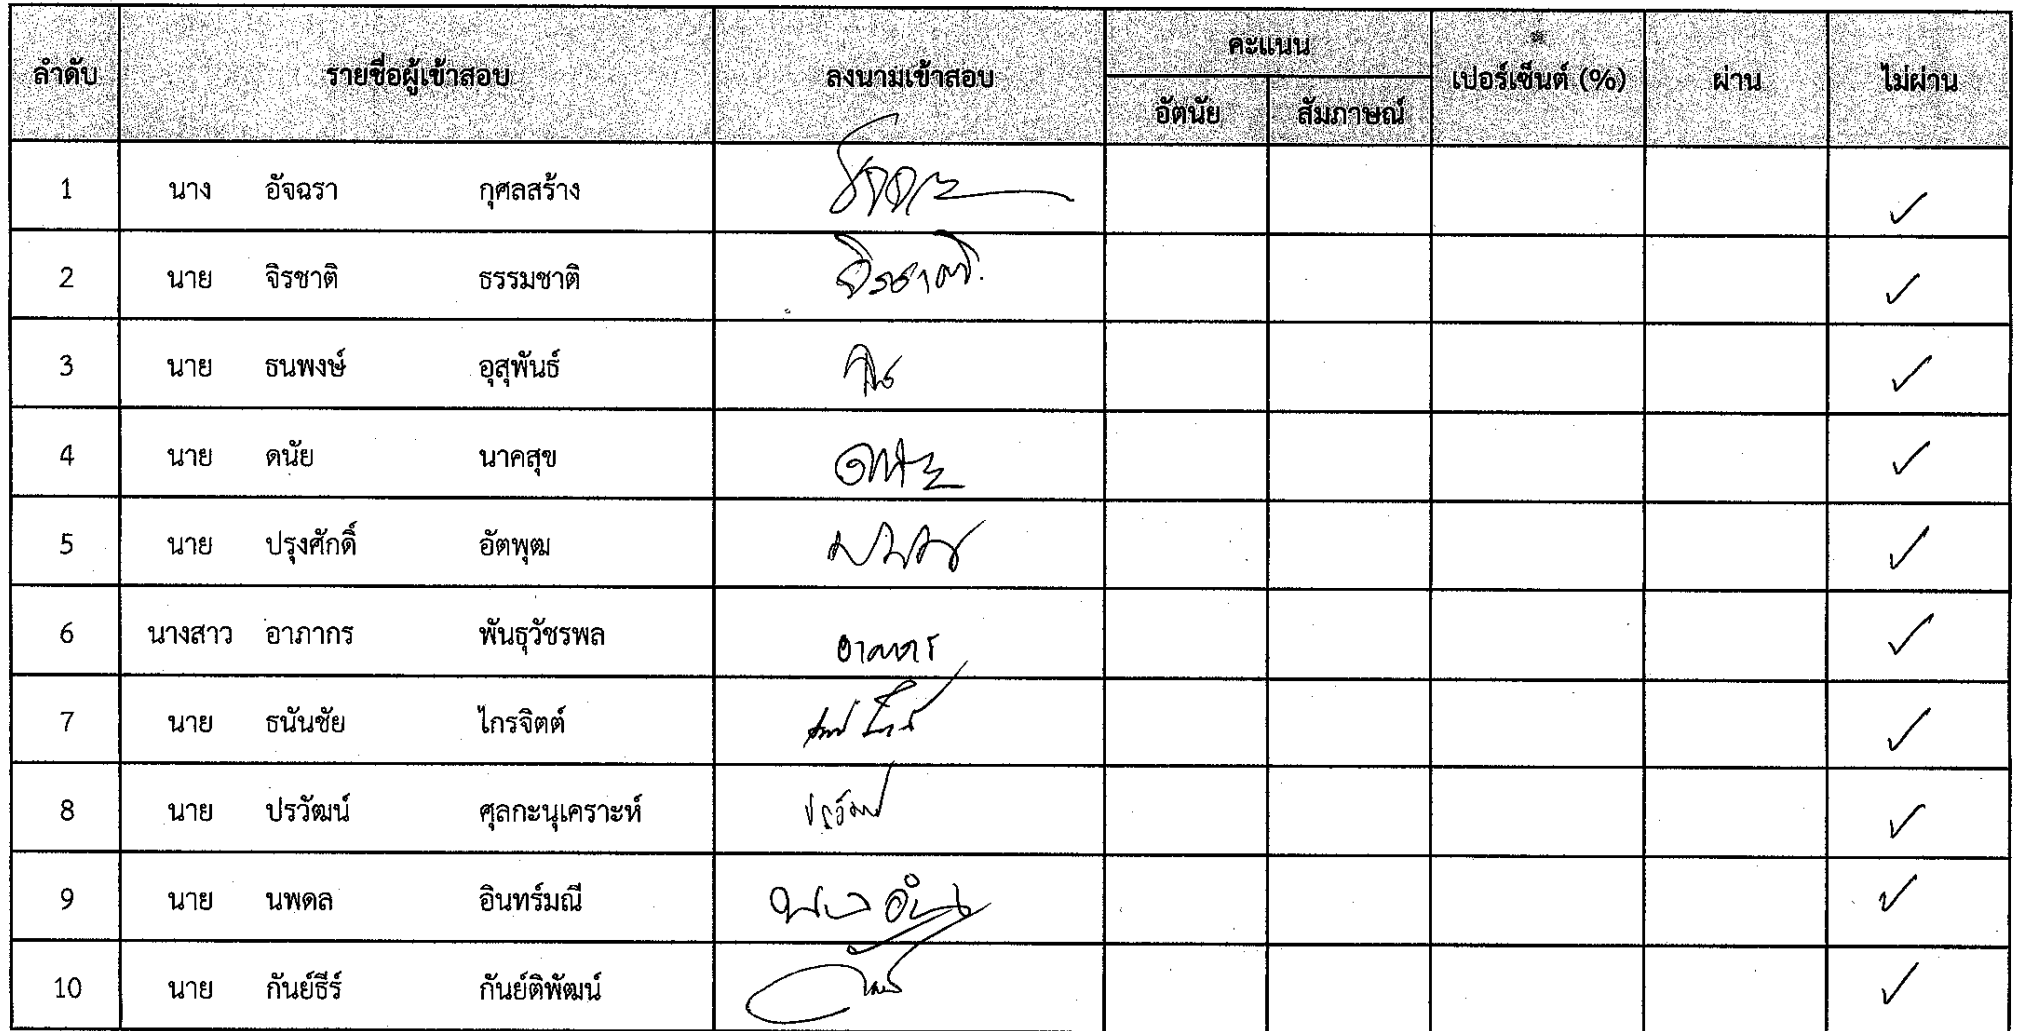 ลำดับ รายชื่อผู้เข้าสอบ ลงนามเข้าสอบ คะแนน เปอร์เซ็นต์ (%) ผ่าน ไม่ผ่าน
อัตนัย สัมภาษณ์
1 นาง อัจฉรา กุศลสร้าง ✓
2 นาย จิรชาติ ธรรมชาติ จิรชาติ ✓
3 นาย ธนพงษ์ อุสุพันธ์ ✓
4 นาย ดนัย นาคสุข ดนัย ✓
5 นาย ปรุงศักดิ์ อัตพุฒ ✓
6 นางสาว อาภากร พันธุวัชรพล อาภากร ✓
7 นาย ธนันชัย ไกรจิตต์ ✓
8 นาย ปรวัฒน์ ศุลกะนุเคราะห์ ปรวัฒน์ ✓
9 นาย นพดล อินทร์มณี ✓
10 นาย กันย์ธีร์ กันย์ติพัฒน์ ✓